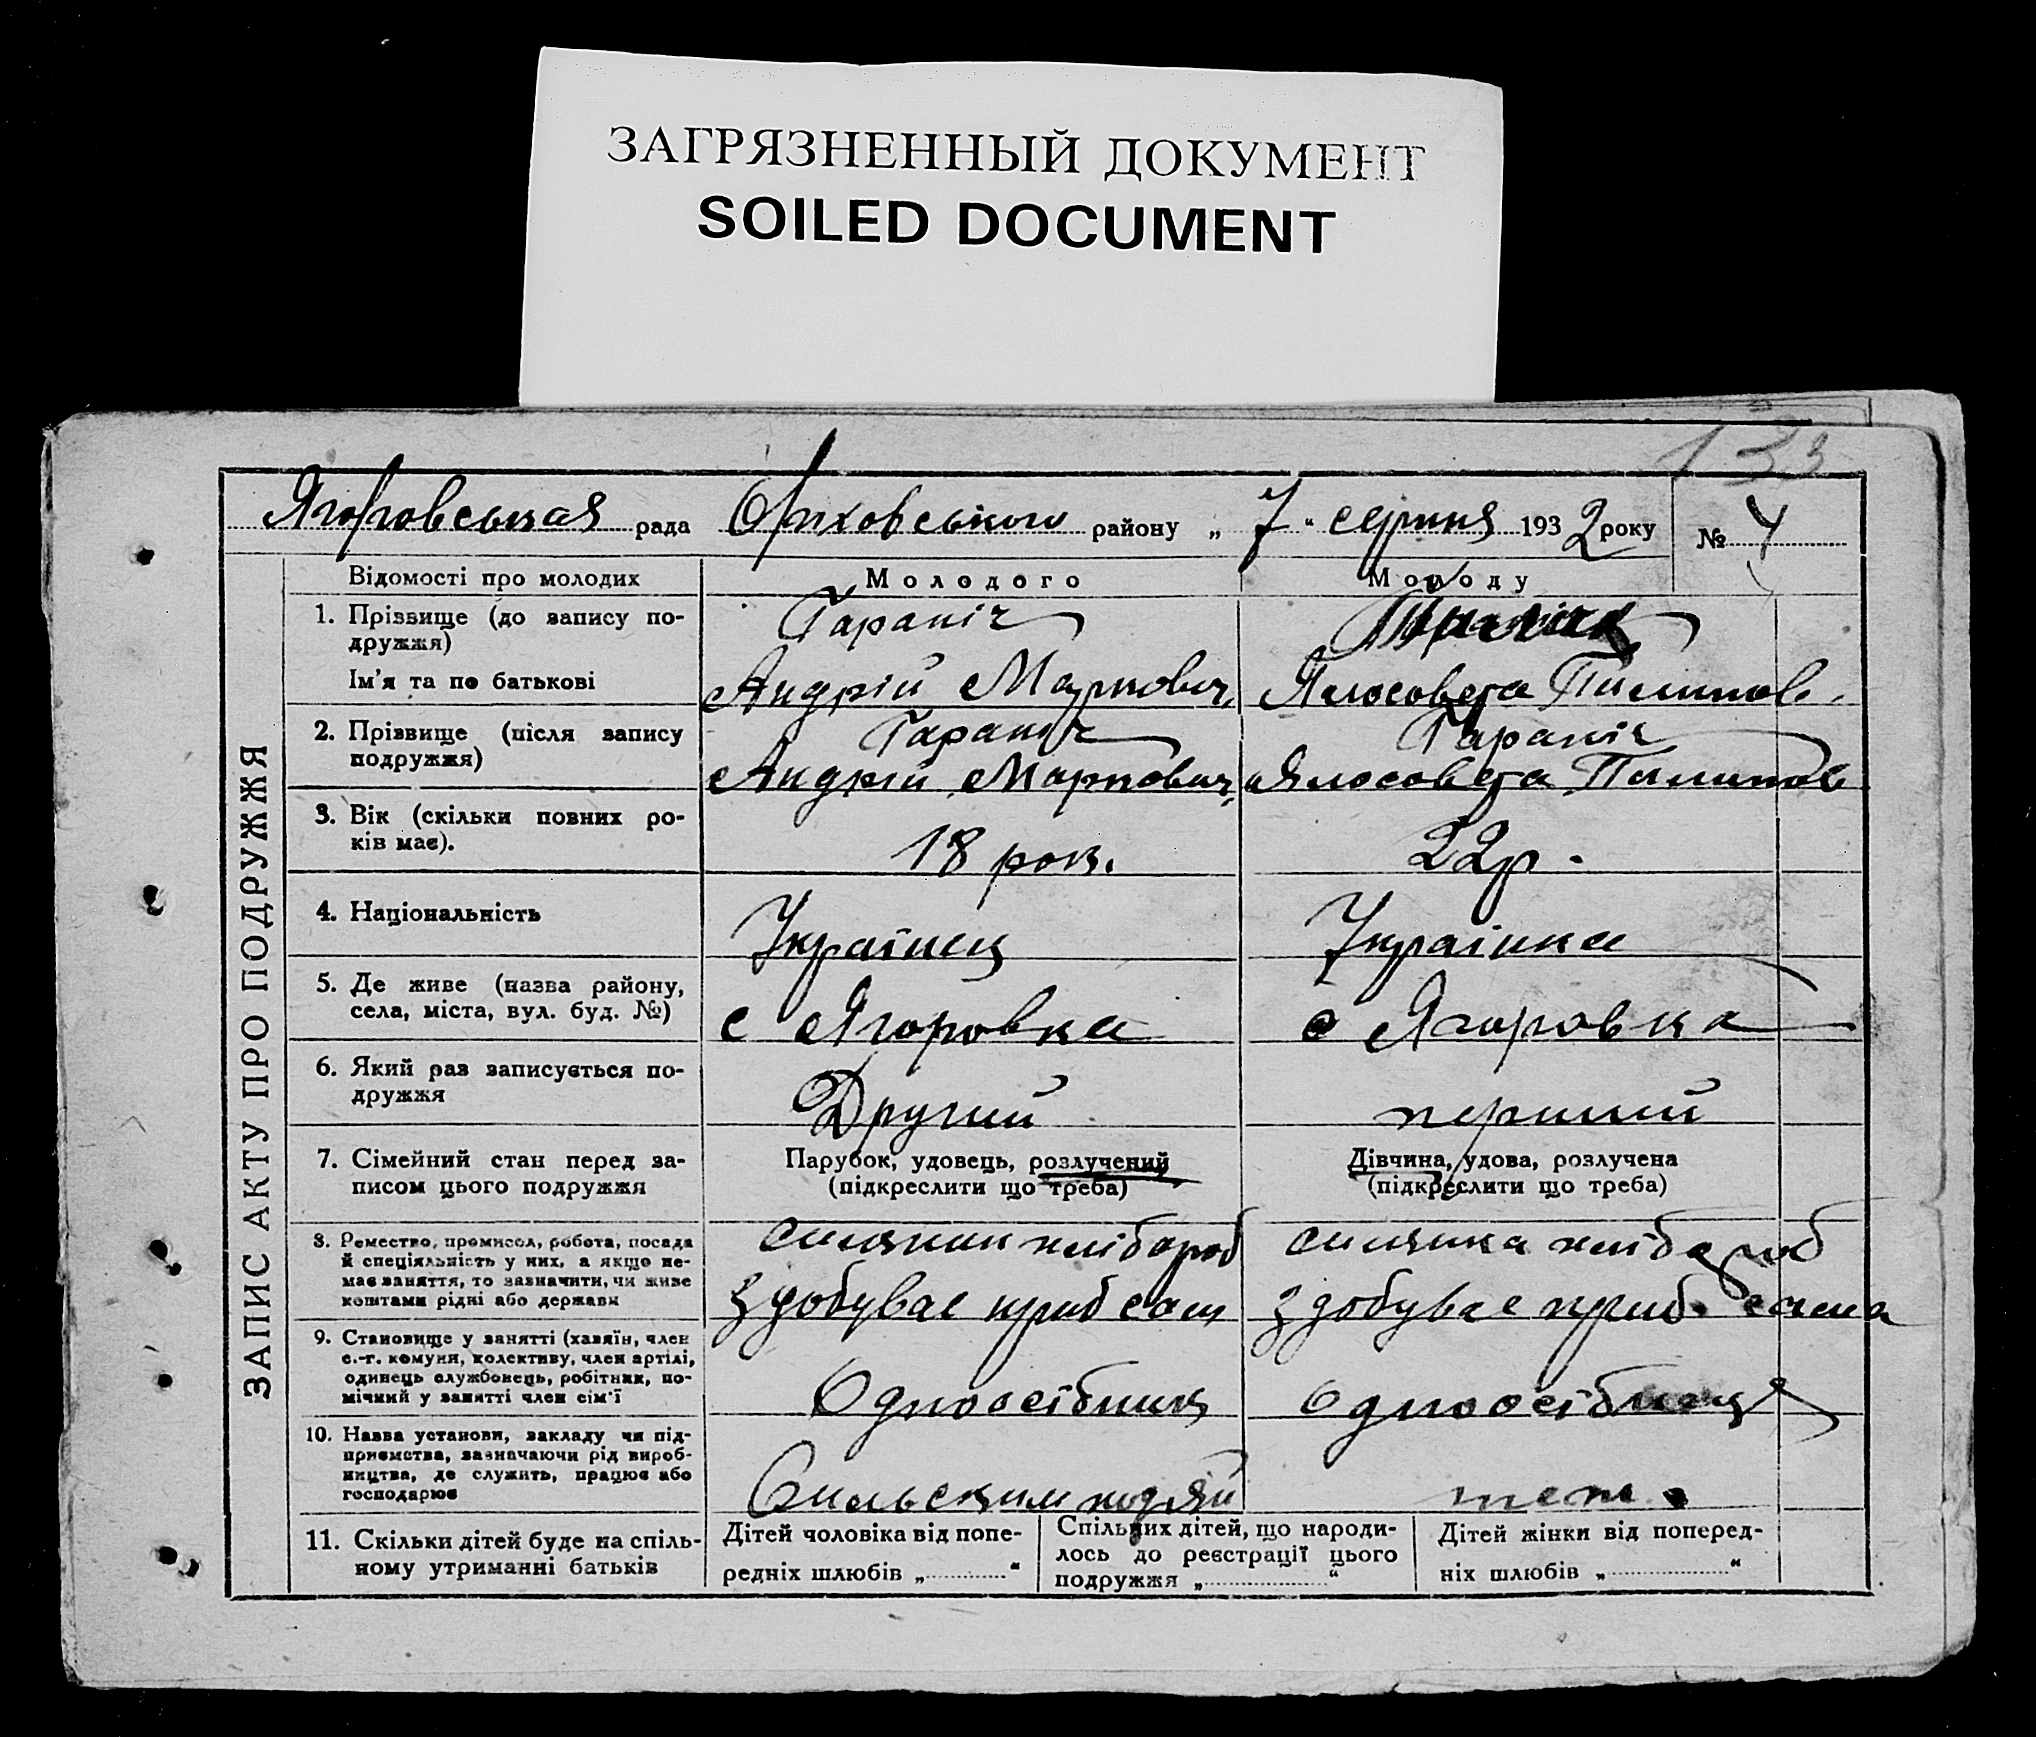 ЗАГРЯЗНЕННЫЙ ДОКУМЕНТ
SOILED DOCUMENT
133
рада району „ 7 “ серпня 1932 року № 4
ЗАПИС АКТУ ПРО ПОДРУЖЖЯ
Відомості про молодих Молодого Молоду
1. Прізвище (до запису по-
дружжя)
Гараніч
Ім'я та по батькові Андрій Маркович Ялосовета Пилипов.
2. Прізвище (після запису
подружжя)
Гараніч Гараніч
Андрій Маркович Ялосовета Пилипов
3. Вік (скільки повних ро-
ків має).
18 рок. 22 р.
4. Національність Українец Українка
5. Де живе (назва району,
села, міста, вул. буд. №)
с Ягоровка с Ягоровка
6. Який раз записується по-
дружжя
Другий перший
7. Сімейний стан перед за-
писом цього подружжя
Парубок, удовець, розлучений
(підкреслити що треба)
Дівчина, удова, розлучена
(підкреслити що треба)
8. Ремество, промисол, робота, посада
й спеціяльність у них, а якщо не-
має заняття, то зазначити, чи живе
коштами рідні або держави
хлібороб хлібороб
здобуває приб сам здобуває приб. сама
9. Становище у занятті (хазяїн, член
с.-г. комуни, колективу, член артілі,
одинець службовець, робітник, по-
мічний у занятті член сім'ї
Одноосібник Одноосібниця
10. Назва установи, закладу чи під-
приємства, зазначаючи рід вироб-
ництва, де служить, працює або
господарює
теж.
11. Скільки дітей буде на спіль-
ному утриманні батьків
Дітей чоловіка від попе-
редніх шлюбів „ “
Спільних дітей, що народи-
лось до реєстрації цього
подружжя „ “
Дітей жінки від поперед-
ніх шлюбів „ “